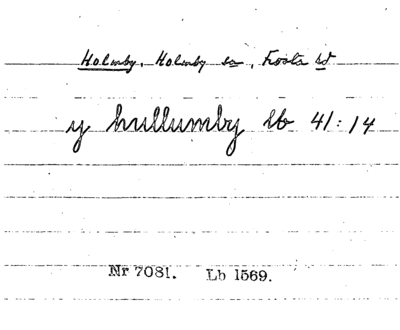 Holmby, Holmby sn, Frosta hd
y hullumby Lb 41:14
Nr 7081. Lb 1569.